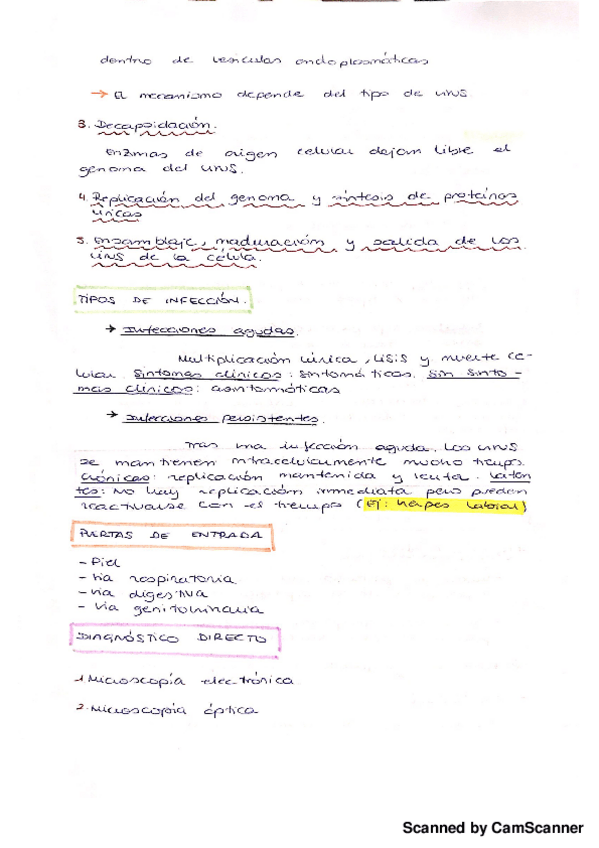 dentro de vesiculas endoplasmáticas
→ El mecanismo depende del tipo de virus
3. Decapsidación.
Enzimas de origen celular dejan libre el
genoma del virus.
4. Replicación del genoma y síntesis de proteínas
víricas
5. Ensamblaje, maduración y salida de los
virus de la célula.
TIPOS DE INFECCIÓN.
→ Infecciones agudas.
Multiplicación vírica, lisis y muerte ce-
lular. Síntomas clínicos: sintomáticas. Sin sínto-
mas clínicos: asintomáticas
→ Infecciones persistentes.
Tras una infección aguda, los virus
se mantienen intracelularmente mucho tiempo.
Crónicas: replicación mantenida y lenta. Laten
tes: No hay replicación inmediata pero pueden
reactivarse con el tiempo (Ej: herpes labial)
PUERTAS DE ENTRADA
- Piel
- Vía respiratoria
- Vía digestiva
- Vía genitourinaria
DIAGNÓSTICO DIRECTO
1. Microscopía electrónica
2. Microscopía óptica
Scanned by CamScanner